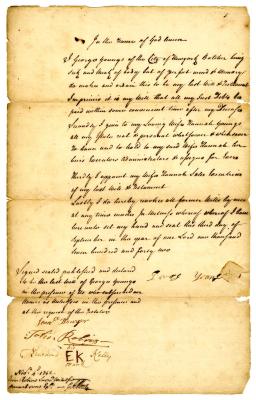 In the Name of God Amen
I George Youngs of the City of Newyork Butcher being
Sick and weak of body but of perfect mind & memory
do make and ordain this to be my last will & Testament
Imprimis it is my Will that all my Just Debts be
paid within some convenient time after my Decease
Secondly I give to my Loving Wife Hannah Youngs
all my Estate real & personal whatsoever & wheresoever
To have and to hold to my said Wife Hannah her
heirs Executors Administrators & assigns for ever
Thirdly I appoint my Wife Hannah Sole Executrix
of my last will & Testament
Lastly I do hereby revoke all former Wills by me
at any time made In Witness whereof I have
hereunto set my hand and seal this third day of
September in the year of our Lord one thousand
seven hundred and forty two
Signed sealed published and declared
to be the last will of George Youngs
in the presence of us who subscribed our
Names as Witnesses in his presence and
at the request of the Testator
George Youngs
EK
Kelly
mark